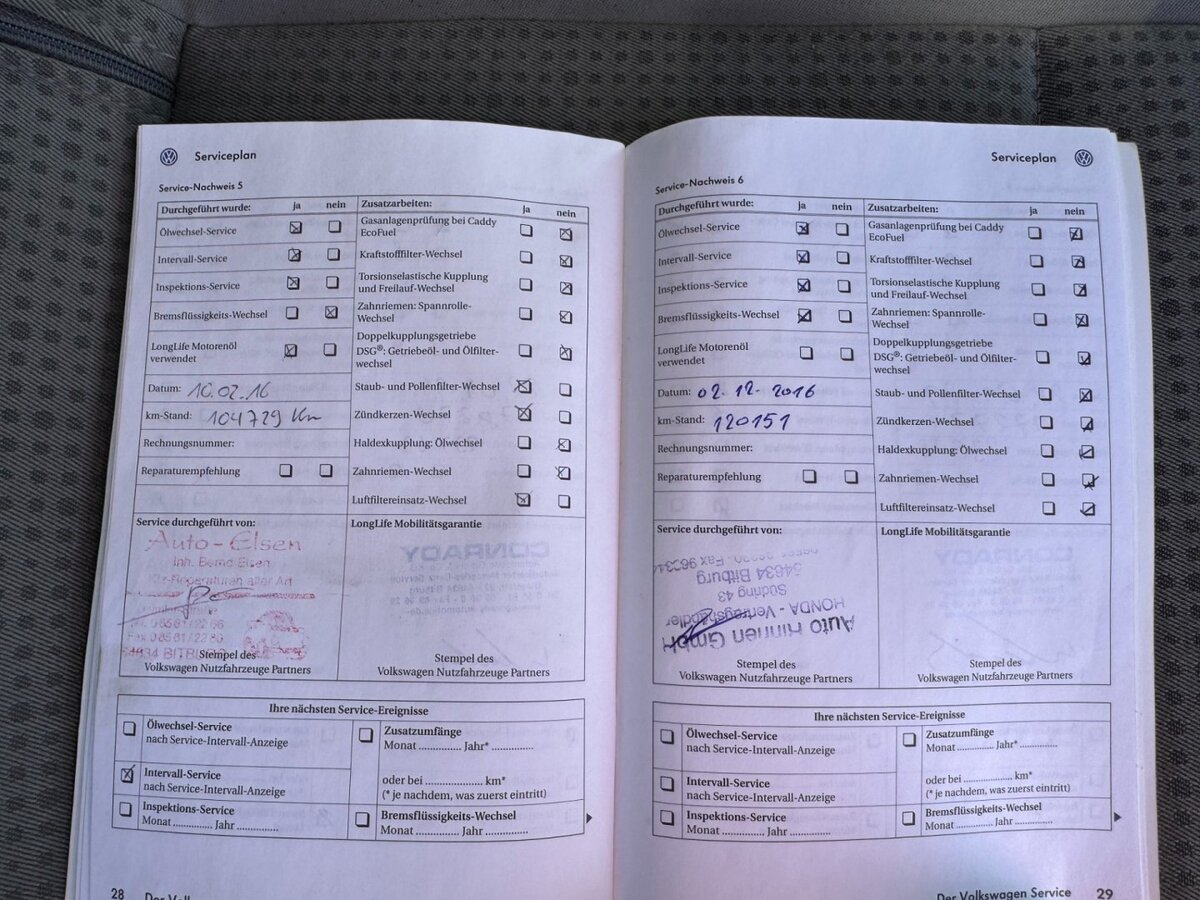 Serviceplan
Service-Nachweis 5
Durchgeführt wurde: ja nein
Ölwechsel-Service
Intervall-Service
Inspektions-Service
Bremsflüssigkeits-Wechsel
LongLife Motorenöl
verwendet
Datum: 16.02.16
km-Stand: 104729 Km
Rechnungsnummer:
Reparaturempfehlung
Zusatzarbeiten: ja nein
Gasanlagenprüfung bei Caddy
EcoFuel
Kraftstofffilter-Wechsel
Torsionselastische Kupplung
und Freilauf-Wechsel
Zahnriemen: Spannrolle-
Wechsel
Doppelkupplungsgetriebe
DSG®: Getriebeöl- und Ölfilter-
wechsel
Staub- und Pollenfilter-Wechsel
Zündkerzen-Wechsel
Haldexkupplung: Ölwechsel
Zahnriemen-Wechsel
Luftfiltereinsatz-Wechsel
Service durchgeführt von:
Auto-Elsen
Inh. Bernd Elsen
Kfz-Reparaturen aller Art
BITBURG
Stempel des
Volkswagen Nutzfahrzeuge Partners
LongLife Mobilitätsgarantie
CONRADY
Stempel des
Volkswagen Nutzfahrzeuge Partners
Ihre nächsten Service-Ereignisse
Ölwechsel-Service
nach Service-Intervall-Anzeige
Intervall-Service
nach Service-Intervall-Anzeige
Inspektions-Service
Monat ............. Jahr .............
Zusatzumfänge
Monat ............. Jahr* .............
oder bei .................... km*
(* je nachdem, was zuerst eintritt)
Bremsflüssigkeits-Wechsel
Monat ............. Jahr .............
28
Serviceplan
Service-Nachweis 6
Durchgeführt wurde: ja nein
Ölwechsel-Service
Intervall-Service
Inspektions-Service
Bremsflüssigkeits-Wechsel
LongLife Motorenöl
verwendet
Datum: 02.12.2016
km-Stand: 120151
Rechnungsnummer:
Reparaturempfehlung
Zusatzarbeiten: ja nein
Gasanlagenprüfung bei Caddy
EcoFuel
Kraftstofffilter-Wechsel
Torsionselastische Kupplung
und Freilauf-Wechsel
Zahnriemen: Spannrolle-
Wechsel
Doppelkupplungsgetriebe
DSG®: Getriebeöl- und Ölfilter-
wechsel
Staub- und Pollenfilter-Wechsel
Zündkerzen-Wechsel
Haldexkupplung: Ölwechsel
Zahnriemen-Wechsel
Luftfiltereinsatz-Wechsel
Service durchgeführt von:
Auto Hinnen GmbH
HONDA - Vertragshändler
Südring 43
54634 Bitburg
Stempel des
Volkswagen Nutzfahrzeuge Partners
LongLife Mobilitätsgarantie
CONRADY
Stempel des
Volkswagen Nutzfahrzeuge Partners
Ihre nächsten Service-Ereignisse
Ölwechsel-Service
nach Service-Intervall-Anzeige
Intervall-Service
nach Service-Intervall-Anzeige
Inspektions-Service
Monat ............. Jahr .............
Zusatzumfänge
Monat ............. Jahr* .............
oder bei .................... km*
(* je nachdem, was zuerst eintritt)
Bremsflüssigkeits-Wechsel
Monat ............. Jahr .............
Der Volkswagen Service 29